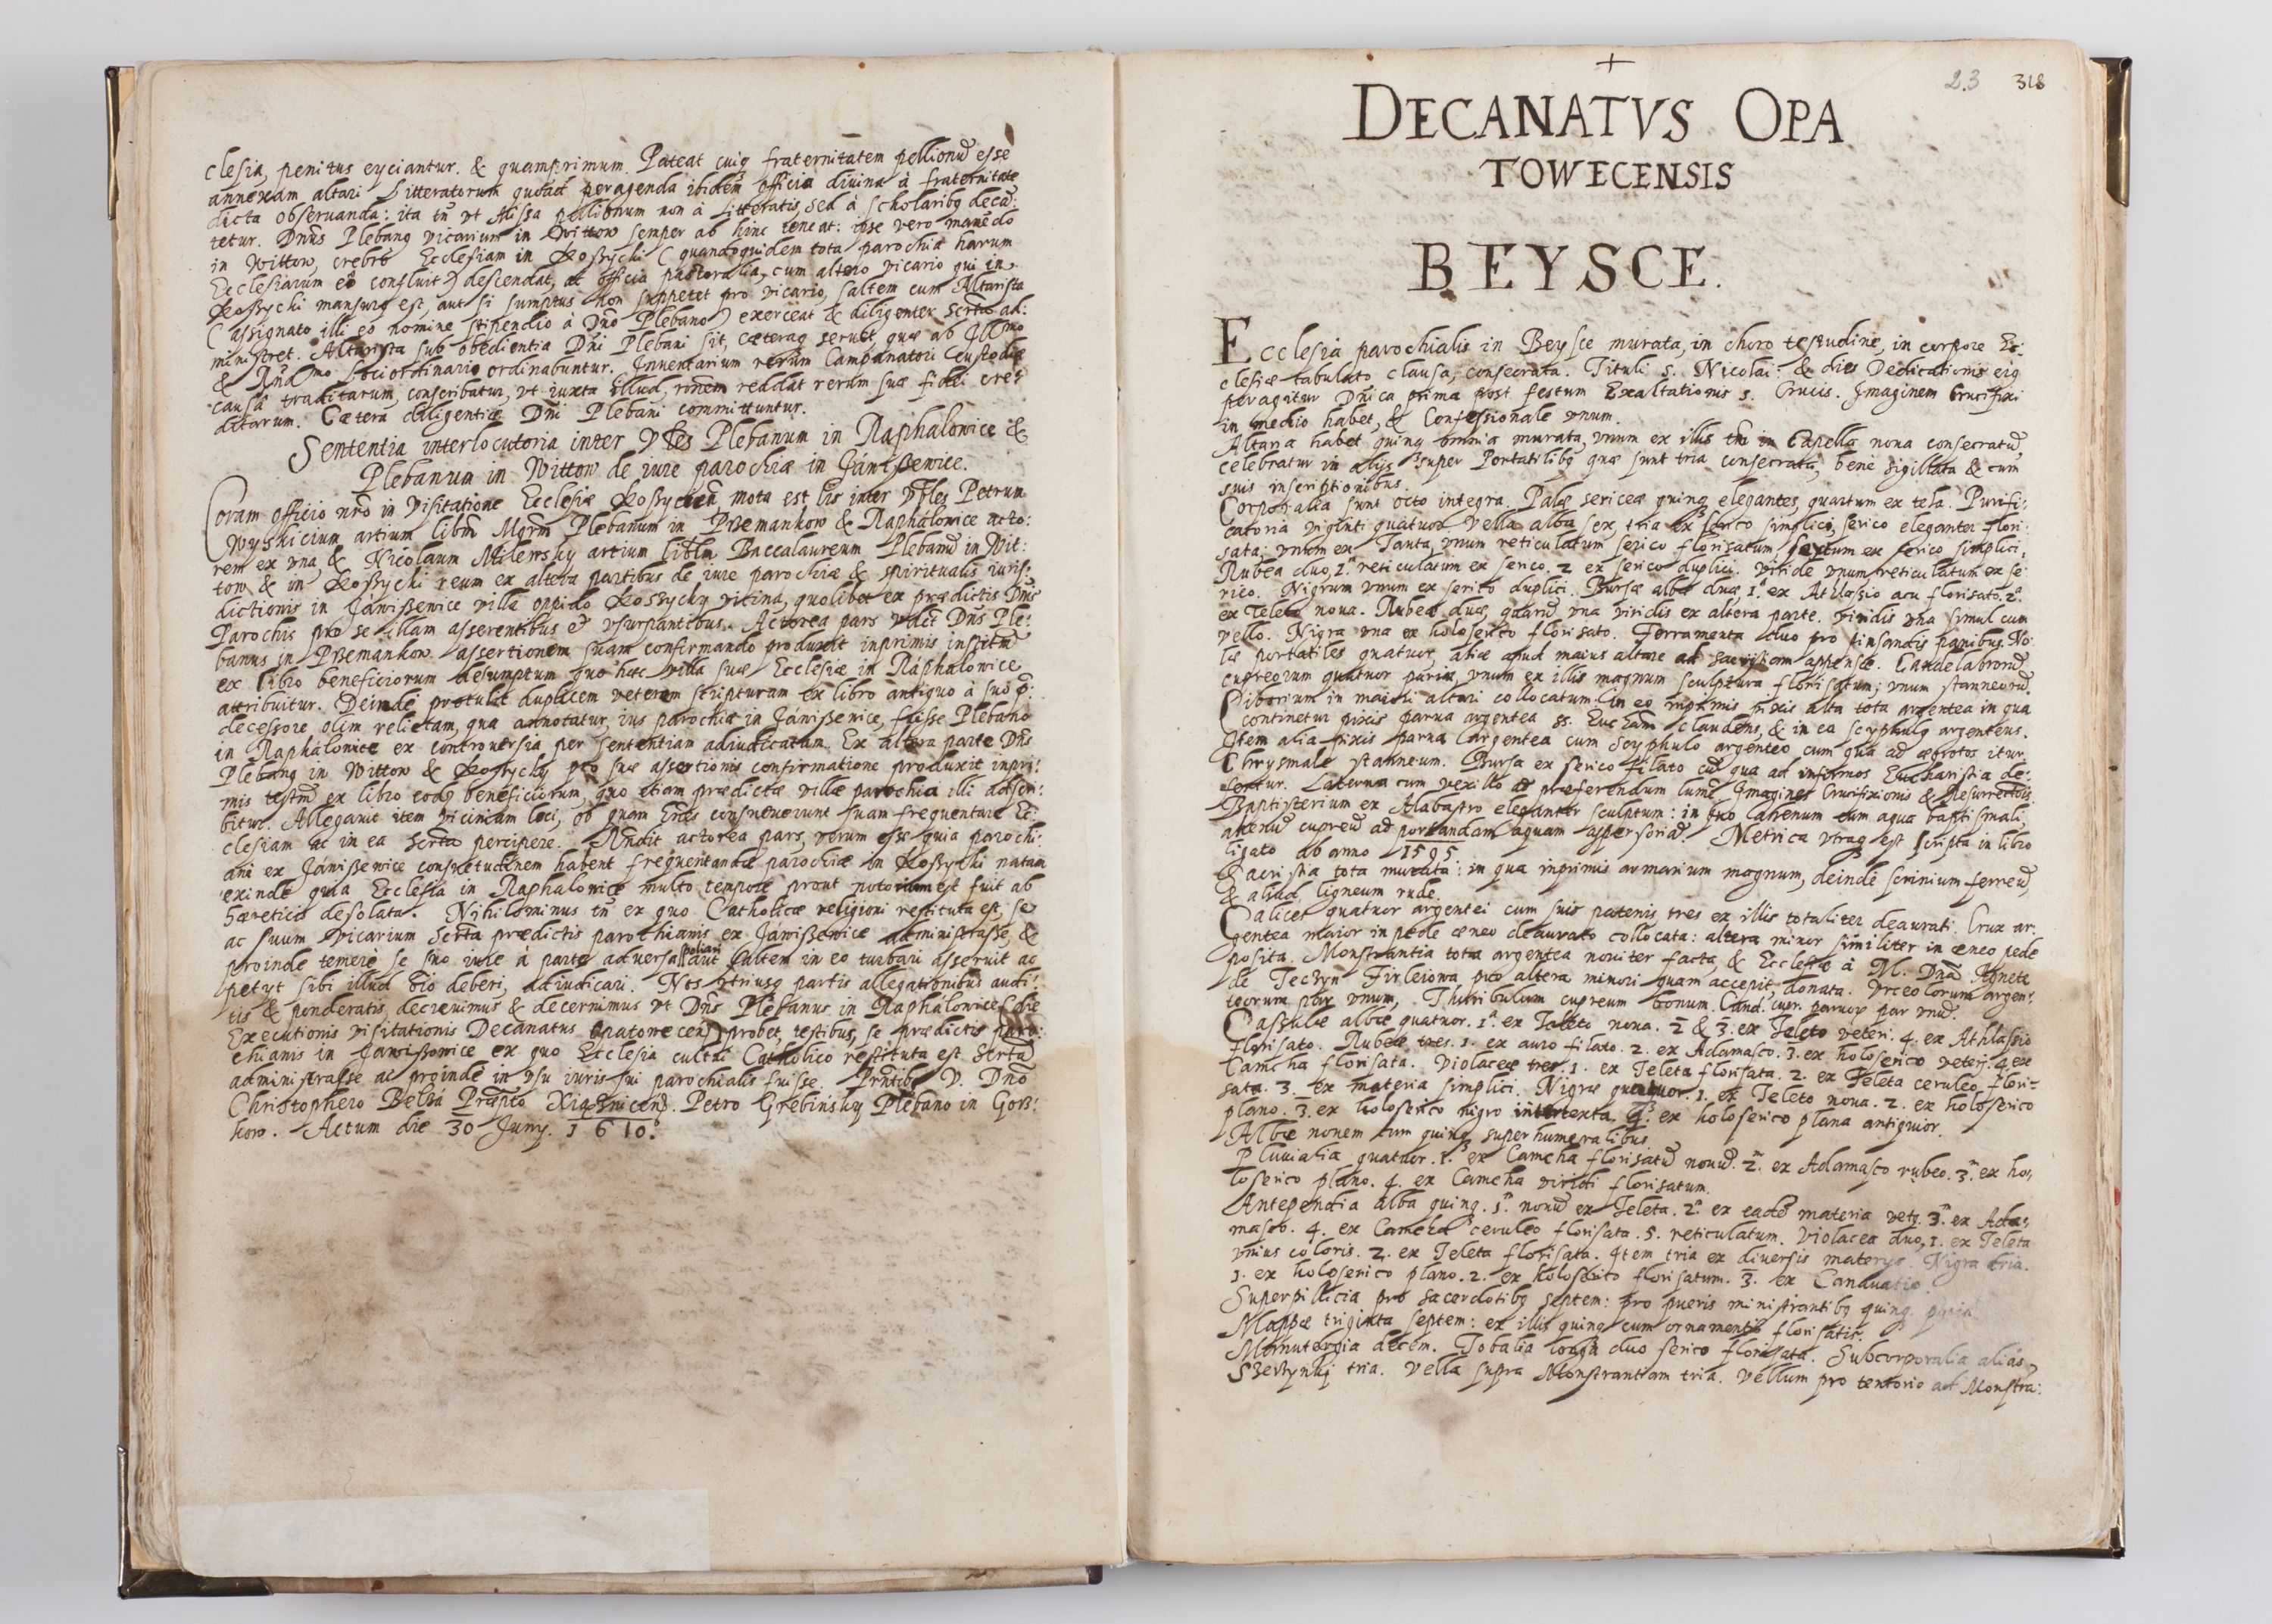 clesia, penitus eyciantur. & quamprimum. Pateat cuiq fraternitatem pellionũ esse
annexam altari Litteratorum quoad peragenda ibidem officia diuina à fraternitate
dicta obseruanda: ita tñ vt Missa pellionum non à Litteratis, sed à scholaribq decã:
tetur. Dnus Plebanq vicarium in Wittow semper ab hinc teneat: ipse vero manẽdo
in Wittow, crebro Ecclesiam in Koßychi (quandoquidem tota parochia harum
Ecclesiarum eo confluit) descendat, ac officia pastoralia, cum altero vicario qui in
Koßychi mansurq est, aut si sumptus non suppetet pro vicario, saltem cum Altarista
(assignato illi eo nomine stipendio à Dno Plebano) exerceat & diligenter Scrta ad:
ministret. Altarista sub obedientia Dñi Plebani sit, cæteraq seruet, quæ ab Illmo
& Rnd mo Loci ordinario ordinabuntur. Inuentarium rerum Campanatori Custodiæ
causa traditarum, conscribatur, vt iuxta illud, rõnem reddat rerum suæ fidei cre:
ditarum. Cætera diligentiæ Dñi Plebani committuntur.
Sententia interlocutoria inter Vbles Plebanum in Raphalowice &
Plebanum in Wittow de iure parochiæ in Jáwißewice.
Coram officio nro in visitatione Ecclesiæ Koßycien mota est lis inter Vbles Petrum
Wyskicium artium libm Mgrm Plebanum in Przemankow & Raphálowice acto:
rem ex vna, & Nicolaum Milewsky artium liblm Baccalaureum Plebanũ in Wit:
tow & in Koßychi reum ex altera partibus de iure parochiæ & spiritualis iuris:
dictionis in Jáwißewice villa oppido Koßychy vicina, quolibet ex prædictis Dnis
Parochis pro se illam asserentibus & vsurpantibus. Actorea pars vdlt Dñs Ple:
banus in Przemankow assertionem suam confirmando produxit inprimis instrm
ex libro beneficiorum desumptum quo hæc villa suæ Ecclesiæ in Ráphalowice
attribuitur. Deinde protulit duplicem veterem scripturam ex libro antiquo à suo p:
decessore olim relictam, qua annotatur, ius parochiæ in Jáwißewice, fuisse Plebano
in Raphálowice ex controuersia per sententiam adiudicatam. Ex altera parte Dñs
Plebanq in Wittow & Koßychy pro suæ assertionis confirmatione produxit inpri:
mis testm ex libro eodẽ beneficiorum, quo etiam prædictæ villæ parochia illi adscri:
bitur. Allegauit item vicinitam loci, ob quam Endes consueuerunt suam frequentare Ec:
clesiam ac in ea Scrta percipere. Rndit actorea pars, verum esse quia parochi:
ani ex Jáwißewice consuetudinem habent frequentandæ parochiæ in Koßychi natam
exinde quia Ecclesia in Raphalowice multo tempore prout notorium est fuit ab
hæreticis desolata. Nihilominus tñ ex quo Catholicæ religioni restituta est, se
ac suum vicarium Scrta prædictis parochianis ex Jáwißewice administrasse, &
proinde temere se suo iure à parte aduersa spoliari aut saltem in eo turbari asseruit ac
petyt sibi illud oio deberi, adiudicari. Nos vtriusq partis allegationibus audi:
tis & ponderatis, decreuimus & decernimus vt Dñs Plebanus in Raphálowice (die
Executionis visitationis Decanatus Opatowecen) probet, testibus, se prædictis paro:
chianis in Jawißowice ex quo Ecclesia cultui Catholico restituta est Scrta
administrasse ac proinde in vsu iuris sui parochialis fuisse. Prntibq V. Dño
Christophero Belza Præpto Xiążnicen. Petro Grebińsky Plebano in Gorz:
kow. Actum die 30 Junij. 1610.
23 318
+
DECANATVS OPA
TOWECENSIS
BEYSCE.
Ecclesia parochialis in Beysce murata, in choro testudine, in corpore Ec:
clesiæ tabulato clausa, consecrata. Tituli S. Nicolai & dies Dedicationis eiq
peragitur Dñica prima post festum Exaltationis S. Crucis. Imaginem Crucifixi
in medio habet, & Confessionale vnum.
Altaria habet quinq omnia murata, vnum ex illis tñ in Capella noua consecratũ,
celebratur in alijs super Portatilibq quæ sunt tria consecrata, bene sigillata & cum
suis inscriptionibus.
Corporalia sunt octo integra. Palæ sericeæ quinq elegantes, quartum ex tela. Purifi:
catoria viginti quatuor. Vella alba sex, tria ex serico simplici, serico eleganter flori:
sata: vnum ex Tanta, vnum reticulatum serico florisatum, sextum ex serico simplici.
Rubea duo, 1m reticulatum ex serico. 2 ex serico duplici. Viride vnum reticulatum ex se
rico. Nigrum vnum ex serico duplici. Bursæ albæ duæ, 1a ex Athlassio acu florisato. 2a
ex Teleta noua. Rubeæ duæ, quarũ vna viridis ex altera parte. viridis vna simul cum
vello. Nigra vna ex holoserico florisato. Ferramenta duo pro pinsandis panibus. No:
læ portatiles quatuor, aliæ apud maius altare ad sacristiam appensæ. Candelabrorũ
cupreorum quatuor paria, vnum ex illis magnum sculptura florisatum; vnum stanneorũ.
Ciborium in maiori altari collocatum. In eo inprimis pixis alta tota argentea in qua
continetur pixis parua argentea SS. Euchãm claudens, & in ea scyphulq argenteus.
Item alia pixis parua argentea cum scyphulo argenteo cum qua ad ægrotos itur.
Chrysmale stanneum. Bursa ex serico filato cũ qua ad infirmos Eucharistia de:
fertur. Laterna cum vexillo ad præferendum lumẽ. Imagines Crucifixionis & Resurrectois.
Baptisterium ex Alabastro eleganter sculptum: in quo cahenum cum aqua baptismali,
ahenũ cupreũ ad portandam aquam aspersoriã. Metrica vtraq est scripta in libro
ligato ab anno 1595.
Sacristia tota murata: in qua inprimis armarium magnum, deinde scrinium ferreũ
& aliud ligneum rude.
Calices quatuor argentei cum suis patenis, tres ex illis totaliter deaurati. Crux ar:
gentea maior in pede æneo deaurato collocata: altera minor similiter in æneo pede
posita. Monstrantia tota argentea nouiter facta, & Ecclesiæ à M. Dnã Agnete
de Teczyn Firleiowa pro altera minori quam accepit, donata. Vrceolorum argen:
teorum par vnum. Thuribulum cupreum bonum. Cand. cupr. paruor par vnũ.
Casulæ albæ quatuor. 1a ex Teleto noua. 2 & 3. ex Teleto veteri. 4. ex Athlassio
florisato. Rubeæ tres. 1. ex auro filato. 2. ex Adamasco. 3. ex holoserico veteri. 4. ex
Camcha florisata. Violaceæ tres. 1. ex Teleta florisata. 2. ex Teleta ceruleo flori=
sata. 3. ex materia simplici. Nigræ quatuor. 1. ex Teleto noua. 2. ex holoserico
plano. 3. ex holoserico nigro intertexta. 4. ex holoserico plana antiquior.
Albæ nouem cum quinq superhumeralibus.
Pluuialia quatuor. 1. ex Camcha florisatũ nouũ. 2m ex Adamasco rubeo. 3m ex ho:
loserico plano. 4. ex Camcha viridi florisatum.
Antependia alba quinq. 1m nouũ ex Teleta. 2m ex eadẽ materia vetq. 3m ex Ada:
masco. 4. ex Camcha ceruleo florisata. 5. reticulatum. Violacea duo, 1. ex Teleta
vnius coloris. 2. ex Teleta florisata. Item tria ex diuersis materys. Nigra tria.
1. ex holoserico plano. 2. ex holoserico florisatum. 3. ex Canauatio.
Superpillicia pro sacerdotibq septem: pro pueris ministrantibq quinq paria
Mappæ triginta septem: ex illis quinq cum ornamentis florisatis.
Manutergia decem. Tobalia longa duo serico florisata. Subcorporalia aliàs
tria. Vella supra Monstrantiam tria. Vellum pro tentorio ad Monstra: